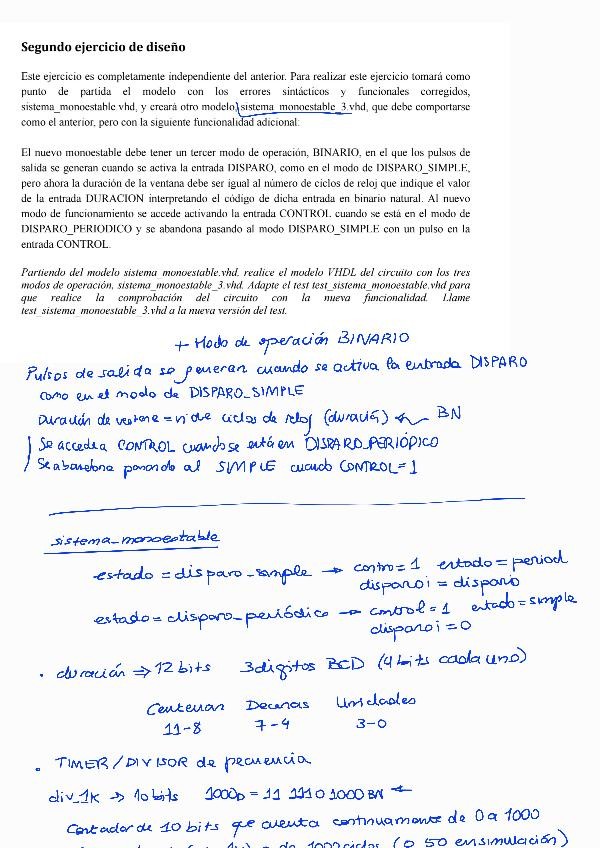 Segundo ejercicio de diseño
Este ejercicio es completamente independiente del anterior. Para realizar este ejercicio tomará como
punto de partida el modelo con los errores sintácticos y funcionales corregidos,
sistema_monoestable.vhd, y creará otro modelo, sistema_monoestable_3.vhd, que debe comportarse
como el anterior, pero con la siguiente funcionalidad adicional:
El nuevo monoestable debe tener un tercer modo de operación, BINARIO, en el que los pulsos de
salida se generan cuando se activa la entrada DISPARO, como en el modo de DISPARO_SIMPLE,
pero ahora la duración de la ventana debe ser igual al número de ciclos de reloj que indique el valor
de la entrada DURACION interpretando el código de dicha entrada en binario natural. Al nuevo
modo de funcionamiento se accede activando la entrada CONTROL cuando se está en el modo de
DISPARO_PERIODICO y se abandona pasando al modo DISPARO_SIMPLE con un pulso en la
entrada CONTROL.
Partiendo del modelo sistema_monoestable.vhd, realice el modelo VHDL del circuito con los tres
modos de operación, sistema_monoestable_3.vhd. Adapte el test test_sistema_monoestable.vhd para
que realice la comprobación del circuito con la nueva funcionalidad. Llame
test_sistema_monoestable_3.vhd a la nueva versión del test.
+ Modo de operación BINARIO
Pulsos de salida se generan cuando se activa la entrada DISPARO
como en el modo de DISPARO_SIMPLE
Duración de ventana = nº de ciclos de reloj (duració) BN
Se accede a CONTROL cuando se está en DISPARO_PERIÓDICO
Se abandona pasando al SIMPLE cuando CONTROL = 1
sistema_monoestable
estado = disparo_simple → contro = 1 estado = period
disparoi = disparo
estado = disparo_periódico → control = 1 estado = simple
disparoi = 0
• duración ⇒ 12 bits 3 digitos BCD (4 bits cada uno)
Centenas Decenas Unidades
11-8 7-4 3-0
• TIMER / DIVISOR de frecuencia
div_1k → 10 bits 1000D = 11 1110 1000 BN ←
Contador de 10 bits que cuenta continuamente de 0 a 1000
de 1000 ciclos (o 50 en simulación)